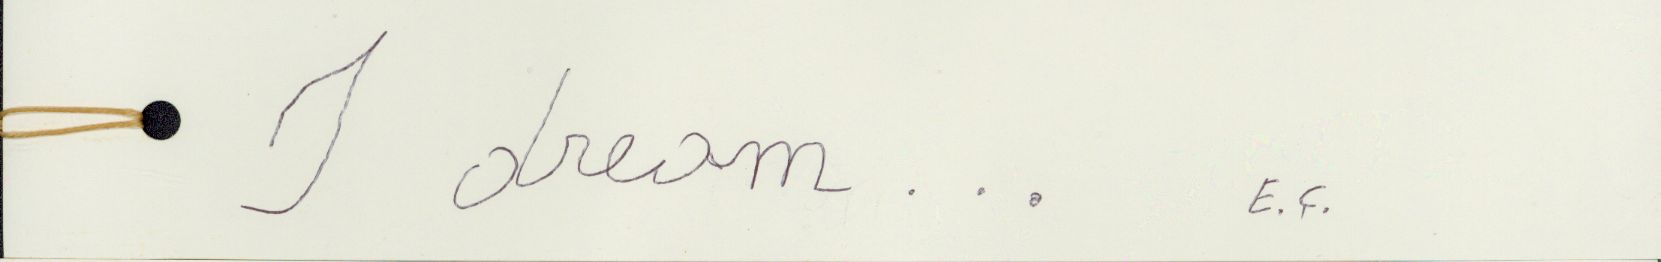 I dream... E.G.